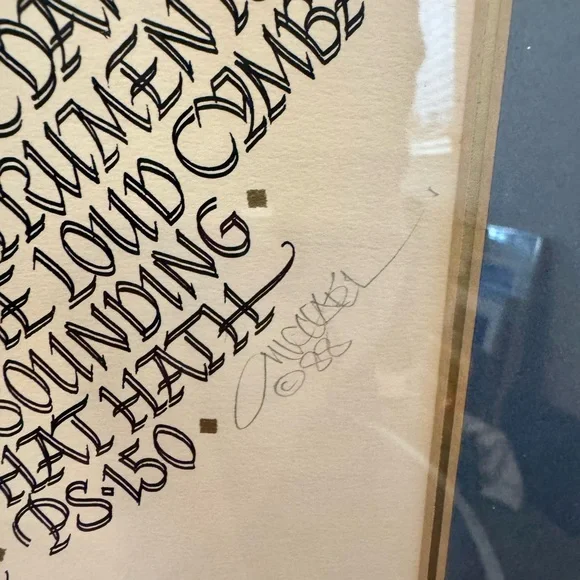 DAN
RUMENTS
LOUD CYMBA
OUNDING
HAT HATH
PS·150
© 88